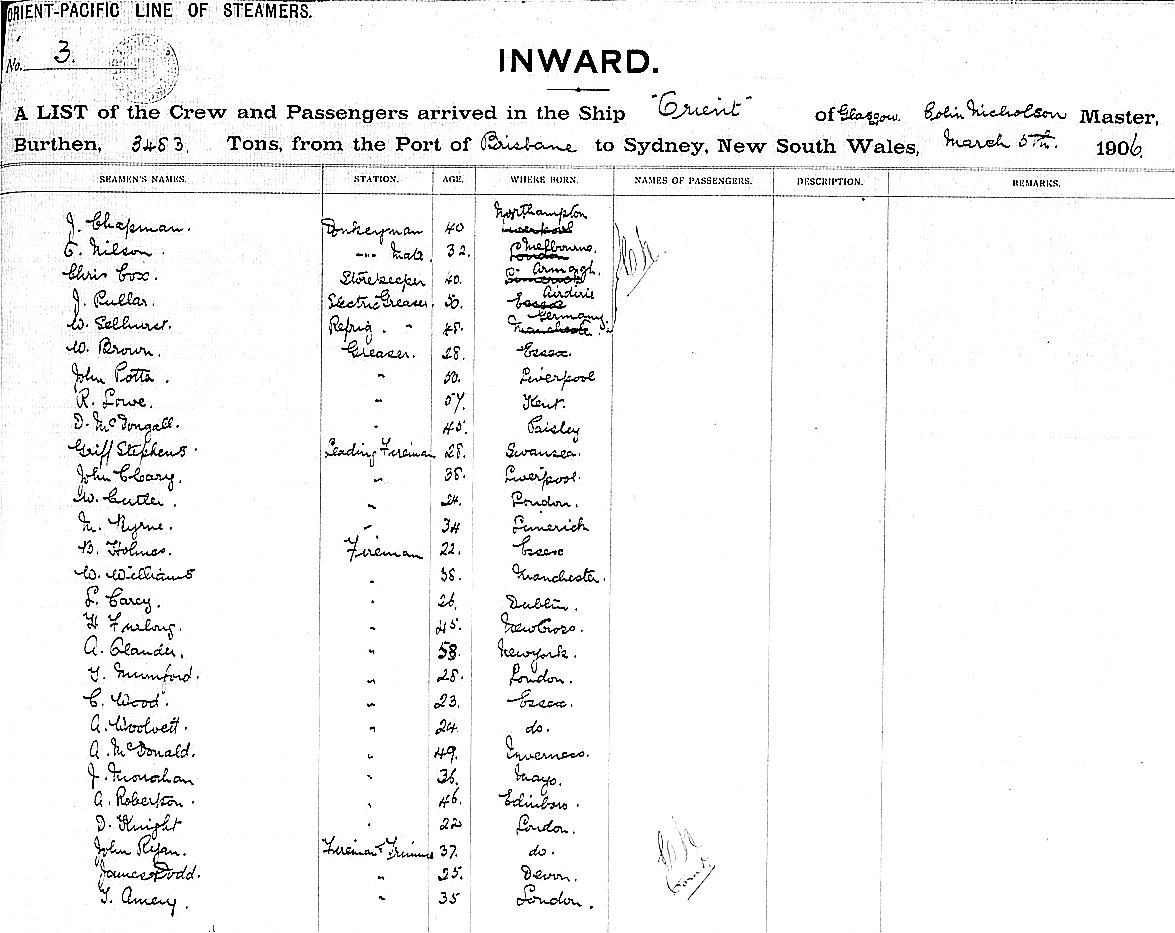 ORIENT-PACIFIC LINE OF STEAMERS.
No. 3.
INWARD.
A LIST of the Crew and Passengers arrived in the Ship "Orient" of Glasgow. Colin Nicholson Master,
Burthen, 3483. Tons, from the Port of Brisbane to Sydney, New South Wales, March 5th. 1906
SEAMEN'S NAMES. STATION. AGE. WHERE BORN. NAMES OF PASSENGERS. DESCRIPTION. REMARKS.
J. Chapman. Donkeyman 40 Northampton Liverpool
C. Nilson. " Mate. 32. Melbourne. London
Chris Cox. Storekeeper 40. Co. Armagh. Limerick
J. Pullar. Electric Greaser. 30. Airdrie Essex
W. Selhurst. Refrig. " 48. Germany. Manchester.
W. Brown. Greaser. 28. Essex.
John Potts. " 50. Liverpool
R. Lowe. " 57. Kent.
D. McDongall. " 45. Paisley
Griff Stephens. Leading Fireman 28. Swansea.
John Cleary. " 38. Liverpool.
W. Cutler. " 24. London.
M. Kyrne. " 34 Limerick
B. Holmes. Fireman 22. Essex
W. Williams " 38. Manchester.
L. Carey. " 26. Dublin.
H Furlong. " 45. New Cross.
A. Olander. " 58. Newyork.
T. Mumford. " 28. London.
C. Wood. " 23. Essex.
A. Woolvett. " 24. do.
A. McDonald. " 49. Inverness.
J. Monahan " 36. Mayo.
A. Robertson. " 46. Edinboro.
D. Knight " 22 London.
John Ryan. Fireman & Trimmer 37. do.
James Dodd. " 25. Devon.
T. Amery. " 35 London.